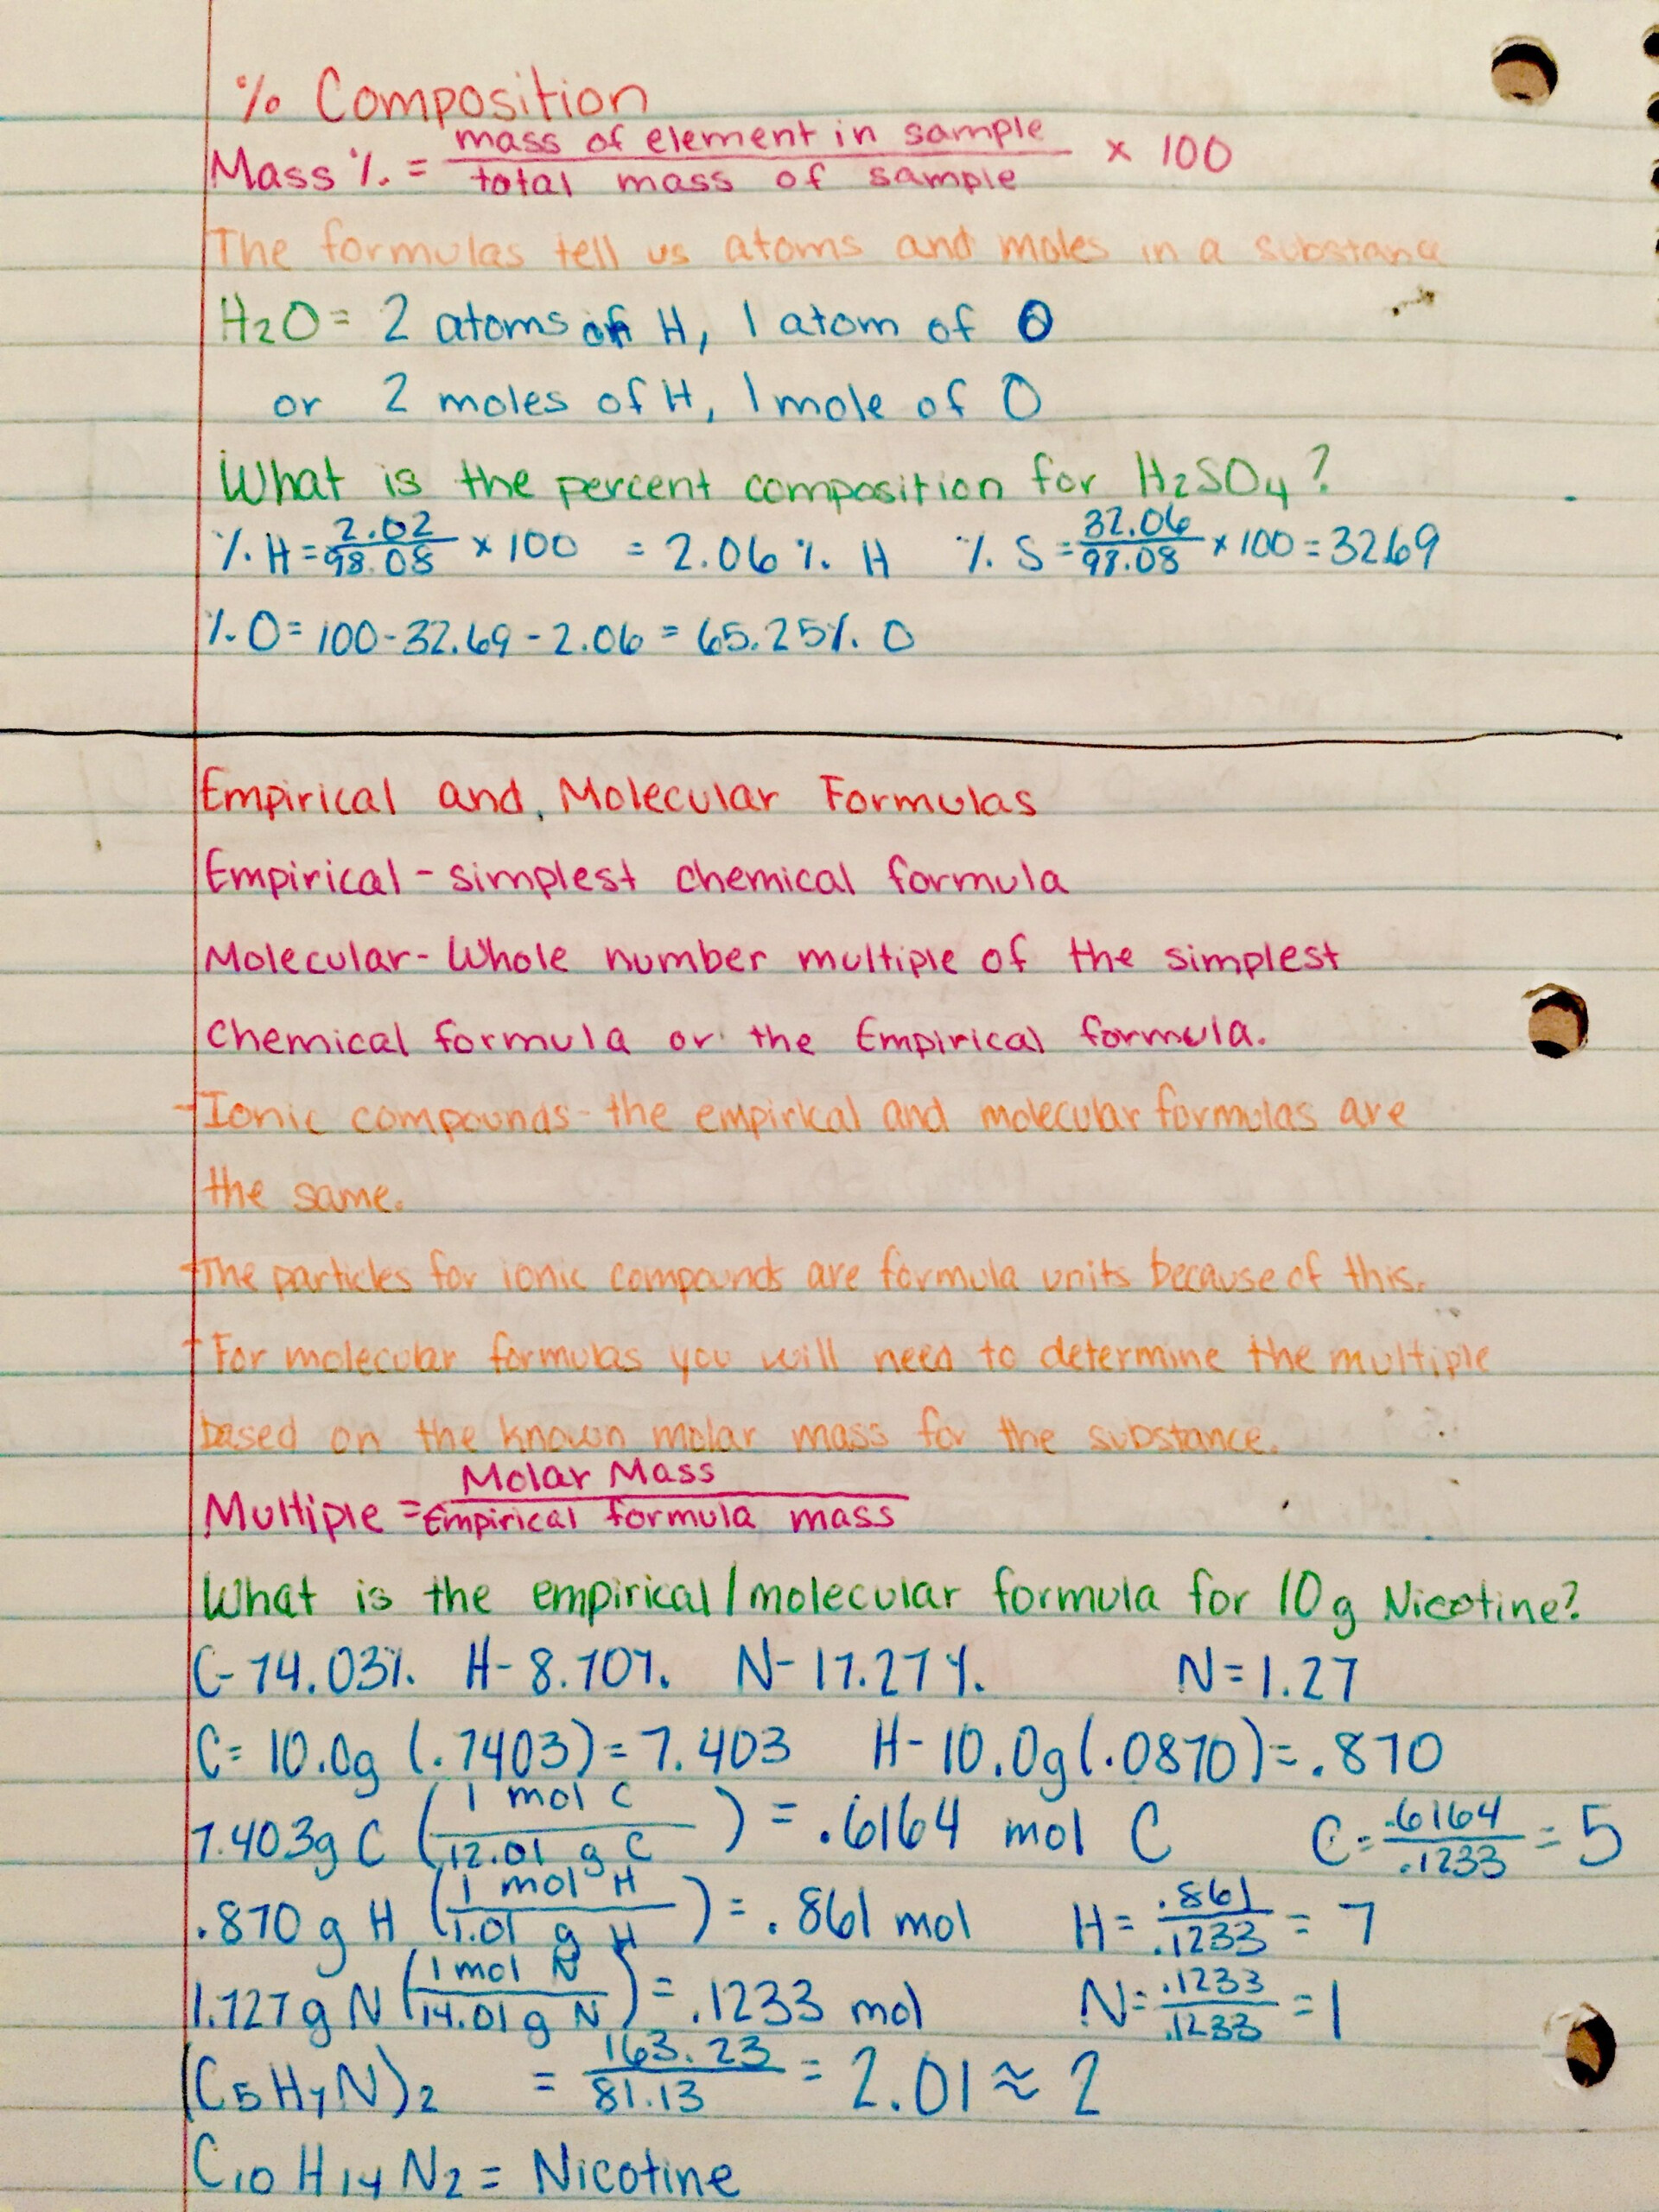 % Composition
Mass % = mass of element in sample / total mass of sample × 100
The formulas tell us atoms and moles in a substance
H₂O = 2 atoms of H, 1 atom of O
or 2 moles of H, 1 mole of O
What is the percent composition for H₂SO₄?
% H = 2.02 / 98.08 × 100 = 2.06 % H % S = 32.06 / 98.08 × 100 = 32.69
% O = 100 - 32.69 - 2.06 = 65.25% O
Empirical and Molecular Formulas
Empirical - simplest chemical formula
Molecular - Whole number multiple of the simplest
Chemical formula or the Empirical formula.
- Ionic compounds - the empirical and molecular formulas are
the same.
- The particles for ionic compounds are formula units because of this.
- For molecular formulas you will need to determine the multiple
based on the known molar mass for the substance.
Multiple = Molar Mass / Empirical formula mass
What is the empirical/molecular formula for 10g Nicotine?
C- 74.03% H- 8.70% N- 17.27% N = 1.27
C = 10.0g (.7403) = 7.403 H- 10.0g (.0870) = .870
7.403g C (1 mol C / 12.01 g C) = .6164 mol C C = .6164 / .1233 = 5
.870 g H (1 mol H / 1.01 g H) = .861 mol H = .861 / .1233 = 7
1.727g N (1 mol N / 14.01g N) = .1233 mol N = .1233 / .1233 = 1
(C₅H₇N)₂ = 163.23 / 81.13 = 2.01 ≈ 2
C₁₀H₁₄N₂ = Nicotine